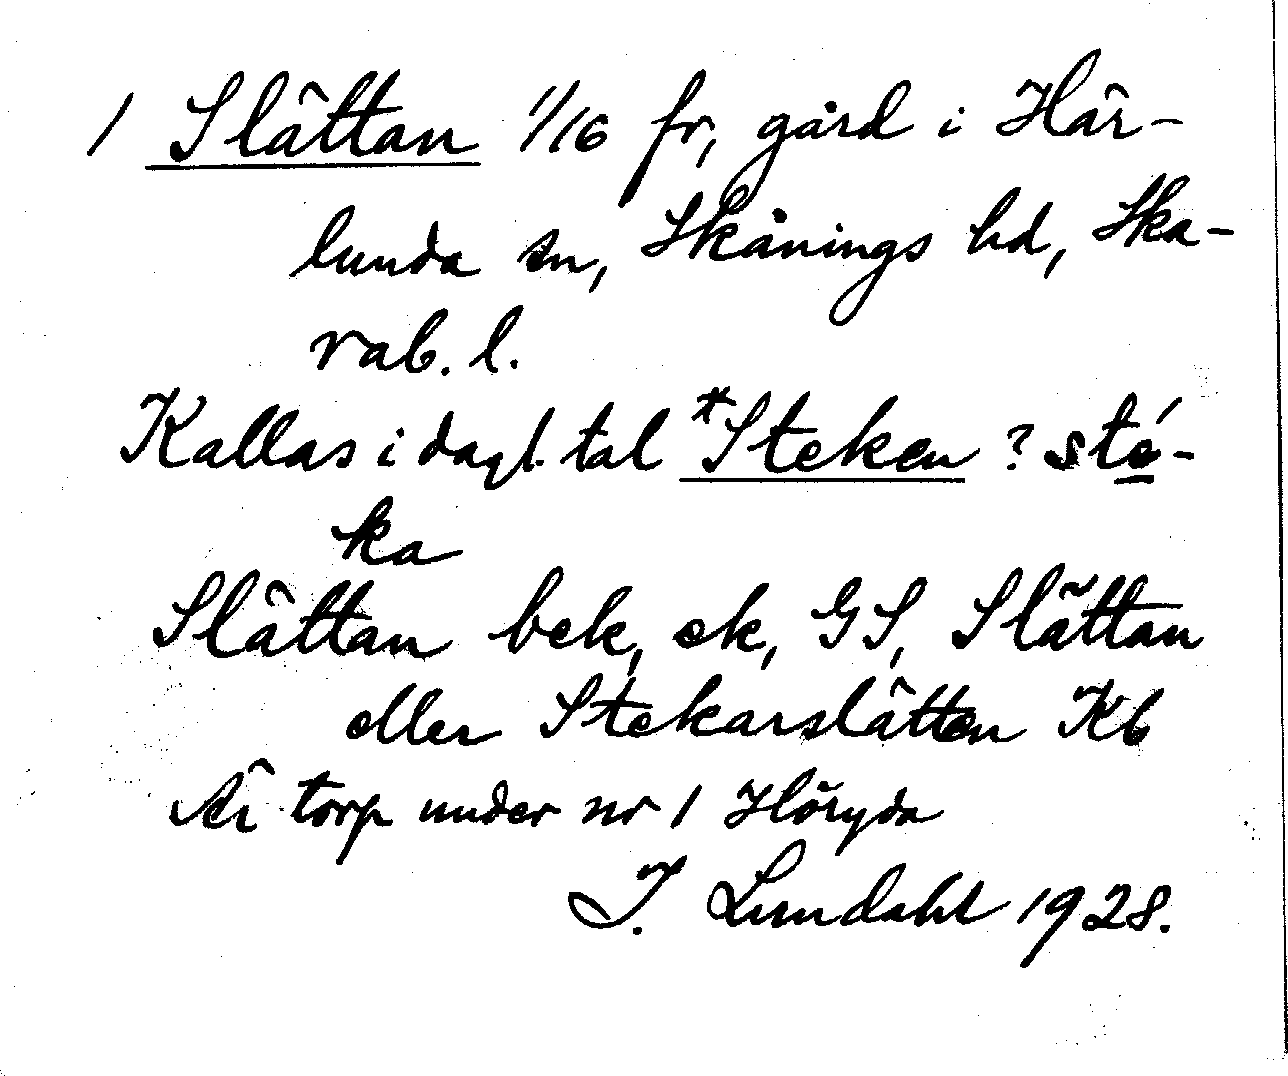 1 Slättan 1/16 fr, gård i Här-
lunda sn, Skånings hd, Ska-
rab. l.
Kallas i dagl. tal *Steken ? sté-
ka
Slättan bek, ek, GS, Slättan
eller Stekarslätten Kb
Är torp under nr 1 Höryda
I. Lundahl 1928.